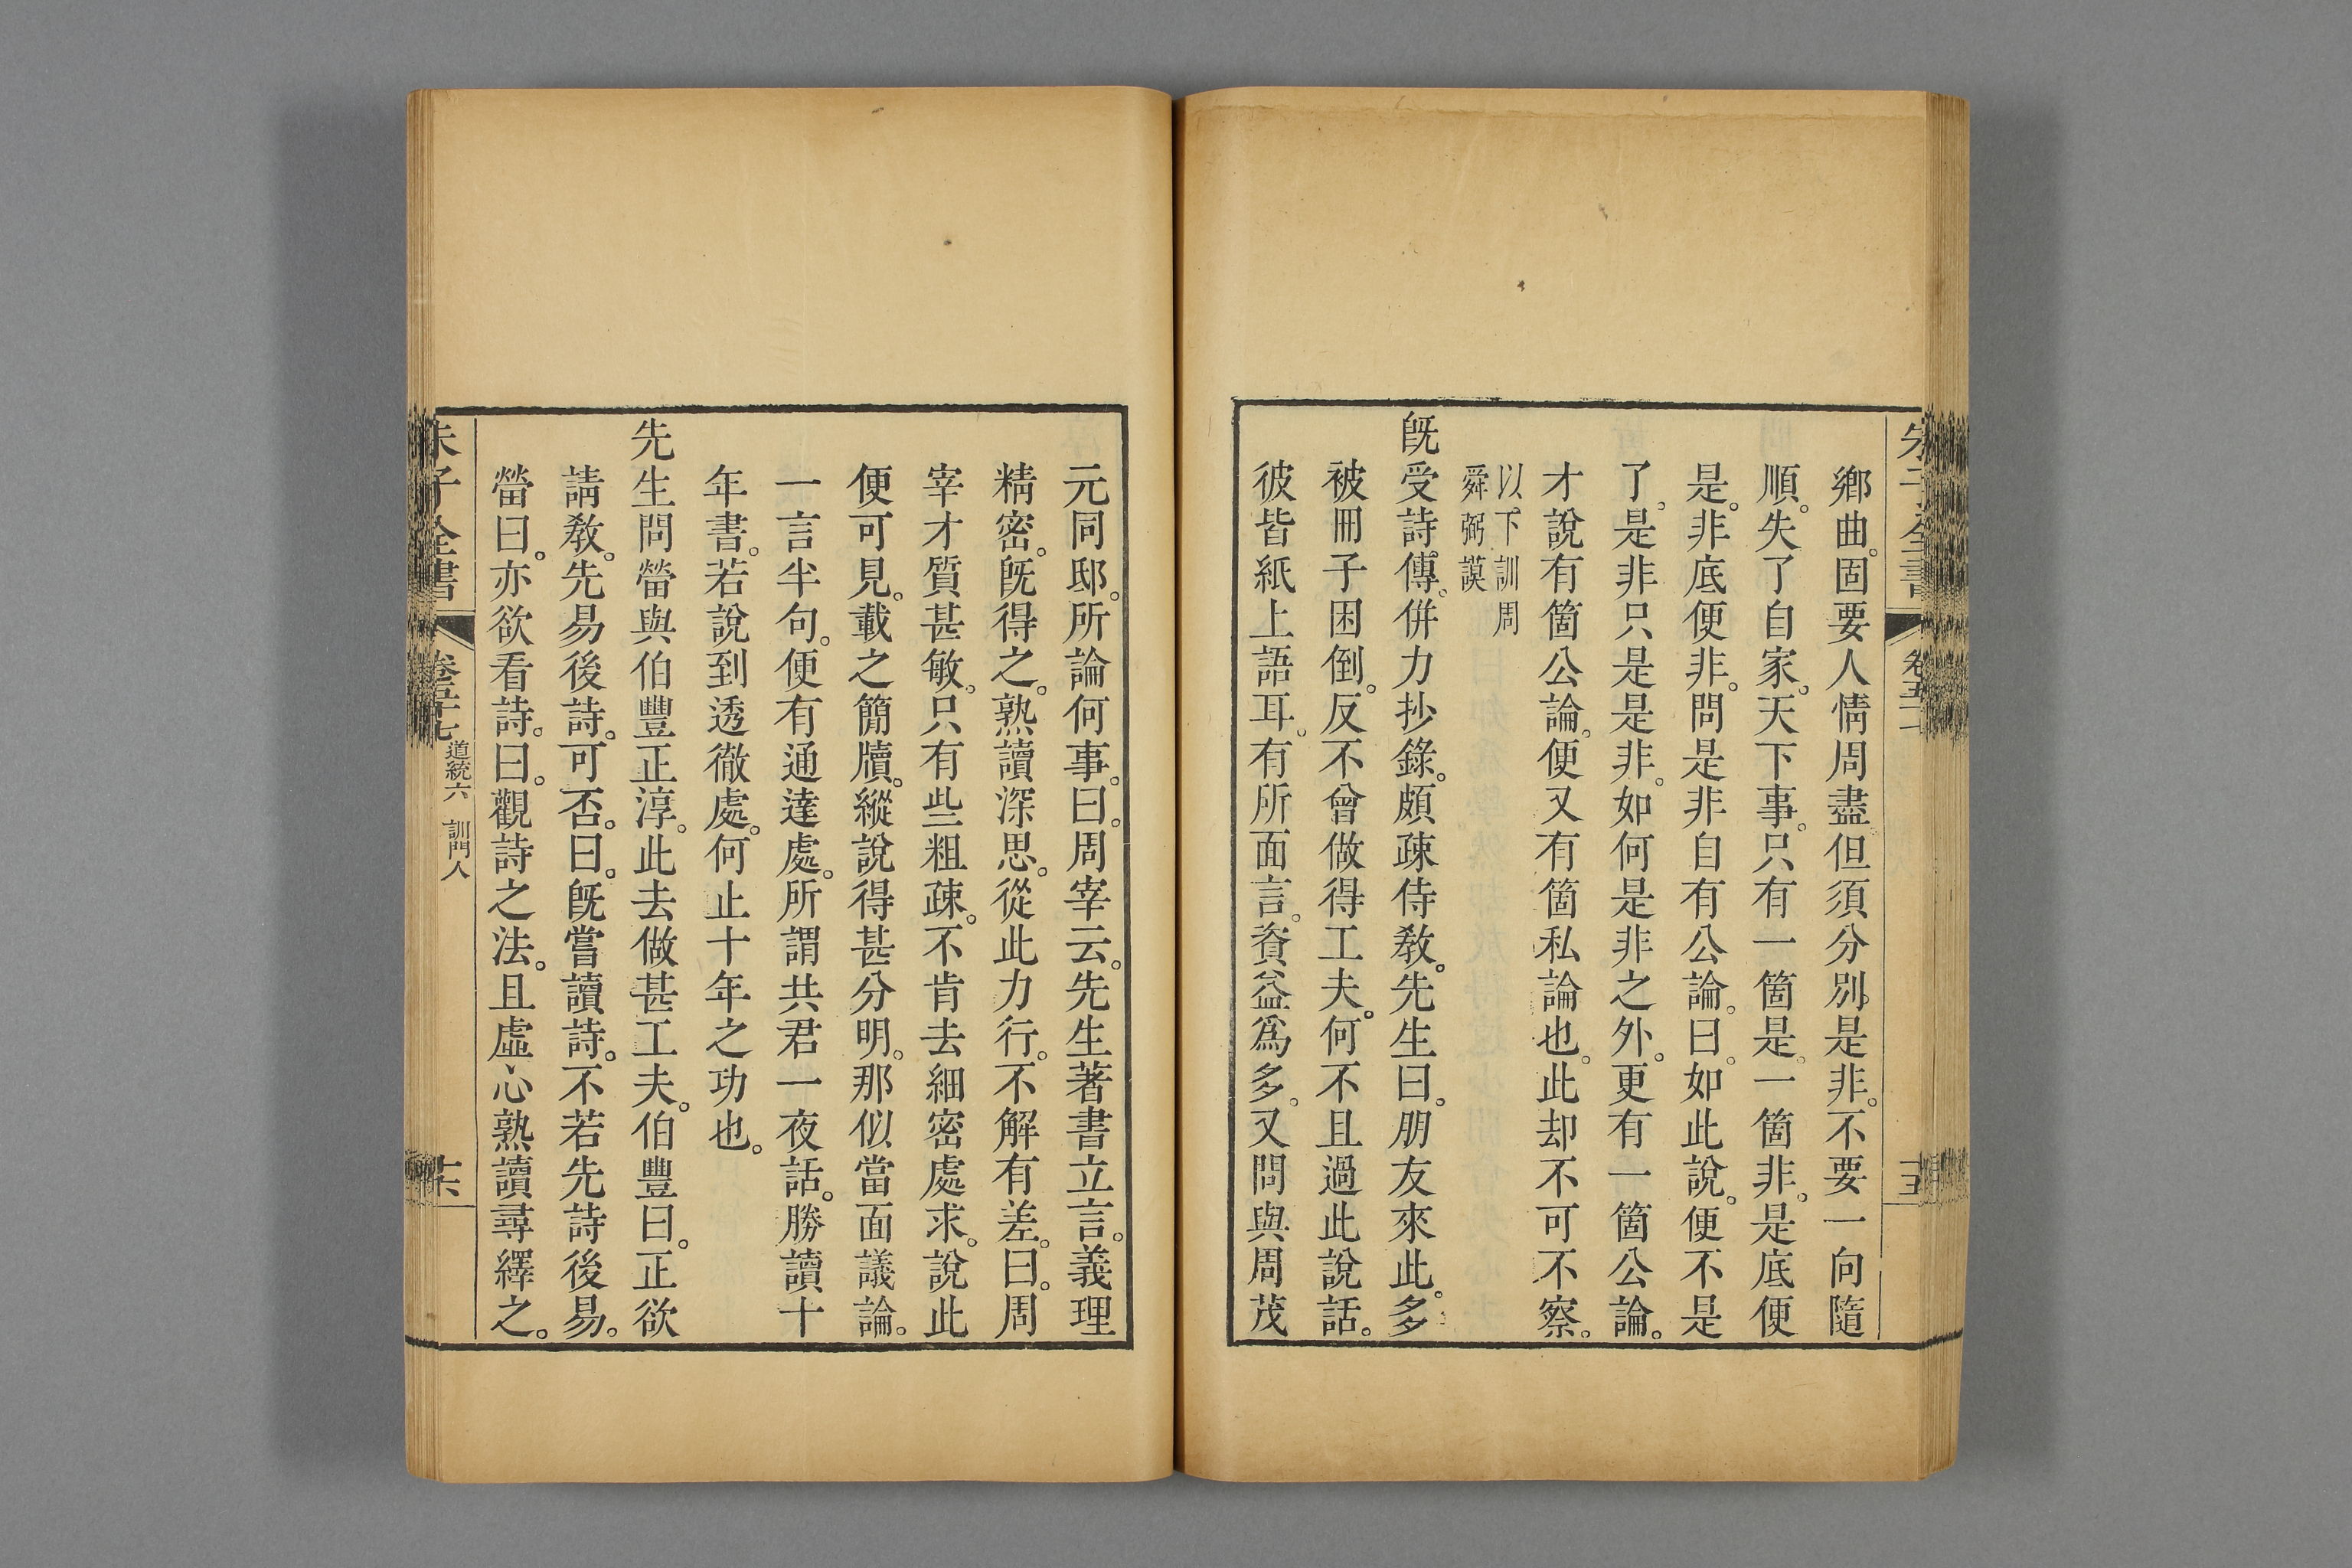 鄉曲。固要人情周盡。但須分別是非。不要一向隨
順。失了自家。天下事。只有一箇是。一箇非。是底便
是。非底便非。問是非自有公論。曰。如此說。便不是
了。是非只是是非。如何是非之外。更有一箇公論。
才說有箇公論。便又有箇私論也。此却不可不察。
以下訓周
舜弼謨
旣受詩傳。併力抄錄。頗疎侍敎。先生曰。朋友來此。多
被冊子困倒。反不曾做得工夫。何不且過此說話。
彼皆紙上語耳。有所面言。資益爲多。又問與周茂
元同邸。所論何事。曰。周宰云。先生著書立言。義理
精密。旣得之。熟讀深思。從此力行。不解有差。曰。周
宰才質甚敏。只有些粗疎。不肯去細密處求。說此
便可見。載之簡牘。縱說得甚分明。那似當面議論。
一言半句。便有通達處。所謂共君一夜話。勝讀十
年書。若說到透徹處。何止十年之功也。
先生問㽦與伯豐正淳。此去做甚工夫。伯豐曰。正欲
請敎。先易後詩。可否。曰。旣嘗讀詩。不若先詩後易。
㽦曰。亦欲看詩。曰。觀詩之法。且虛心熟讀尋繹之。
朱子全書
卷五十七
道統六 訓門人
十六